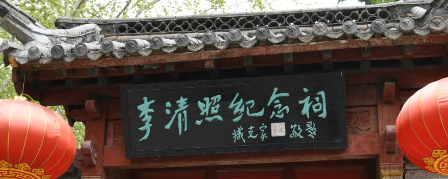 李清照纪念祠
臧克家 敬题